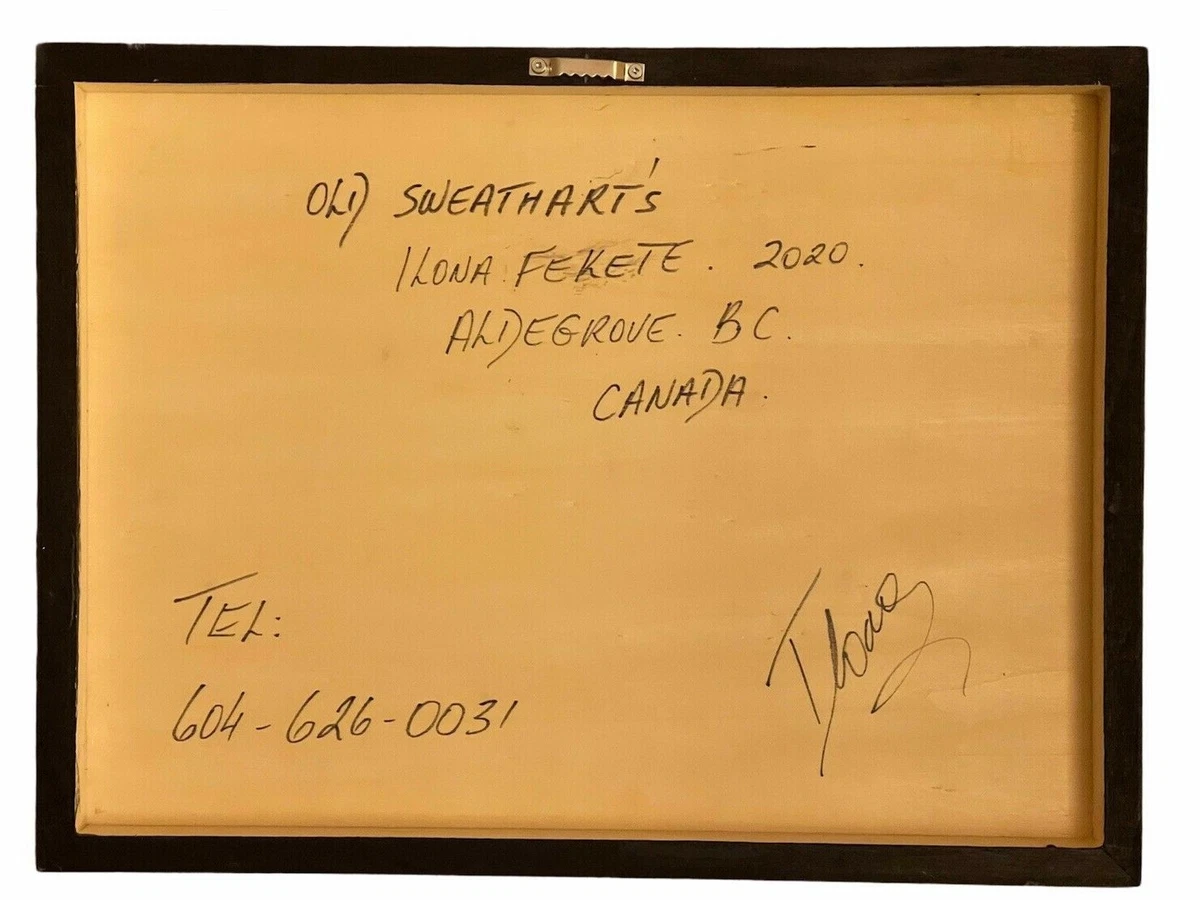 OLD SWEATHART'S
ILONA FEKETE. 2020.
ALDEGROVE. BC.
CANADA.
TEL:
604-626-0031
Ilona